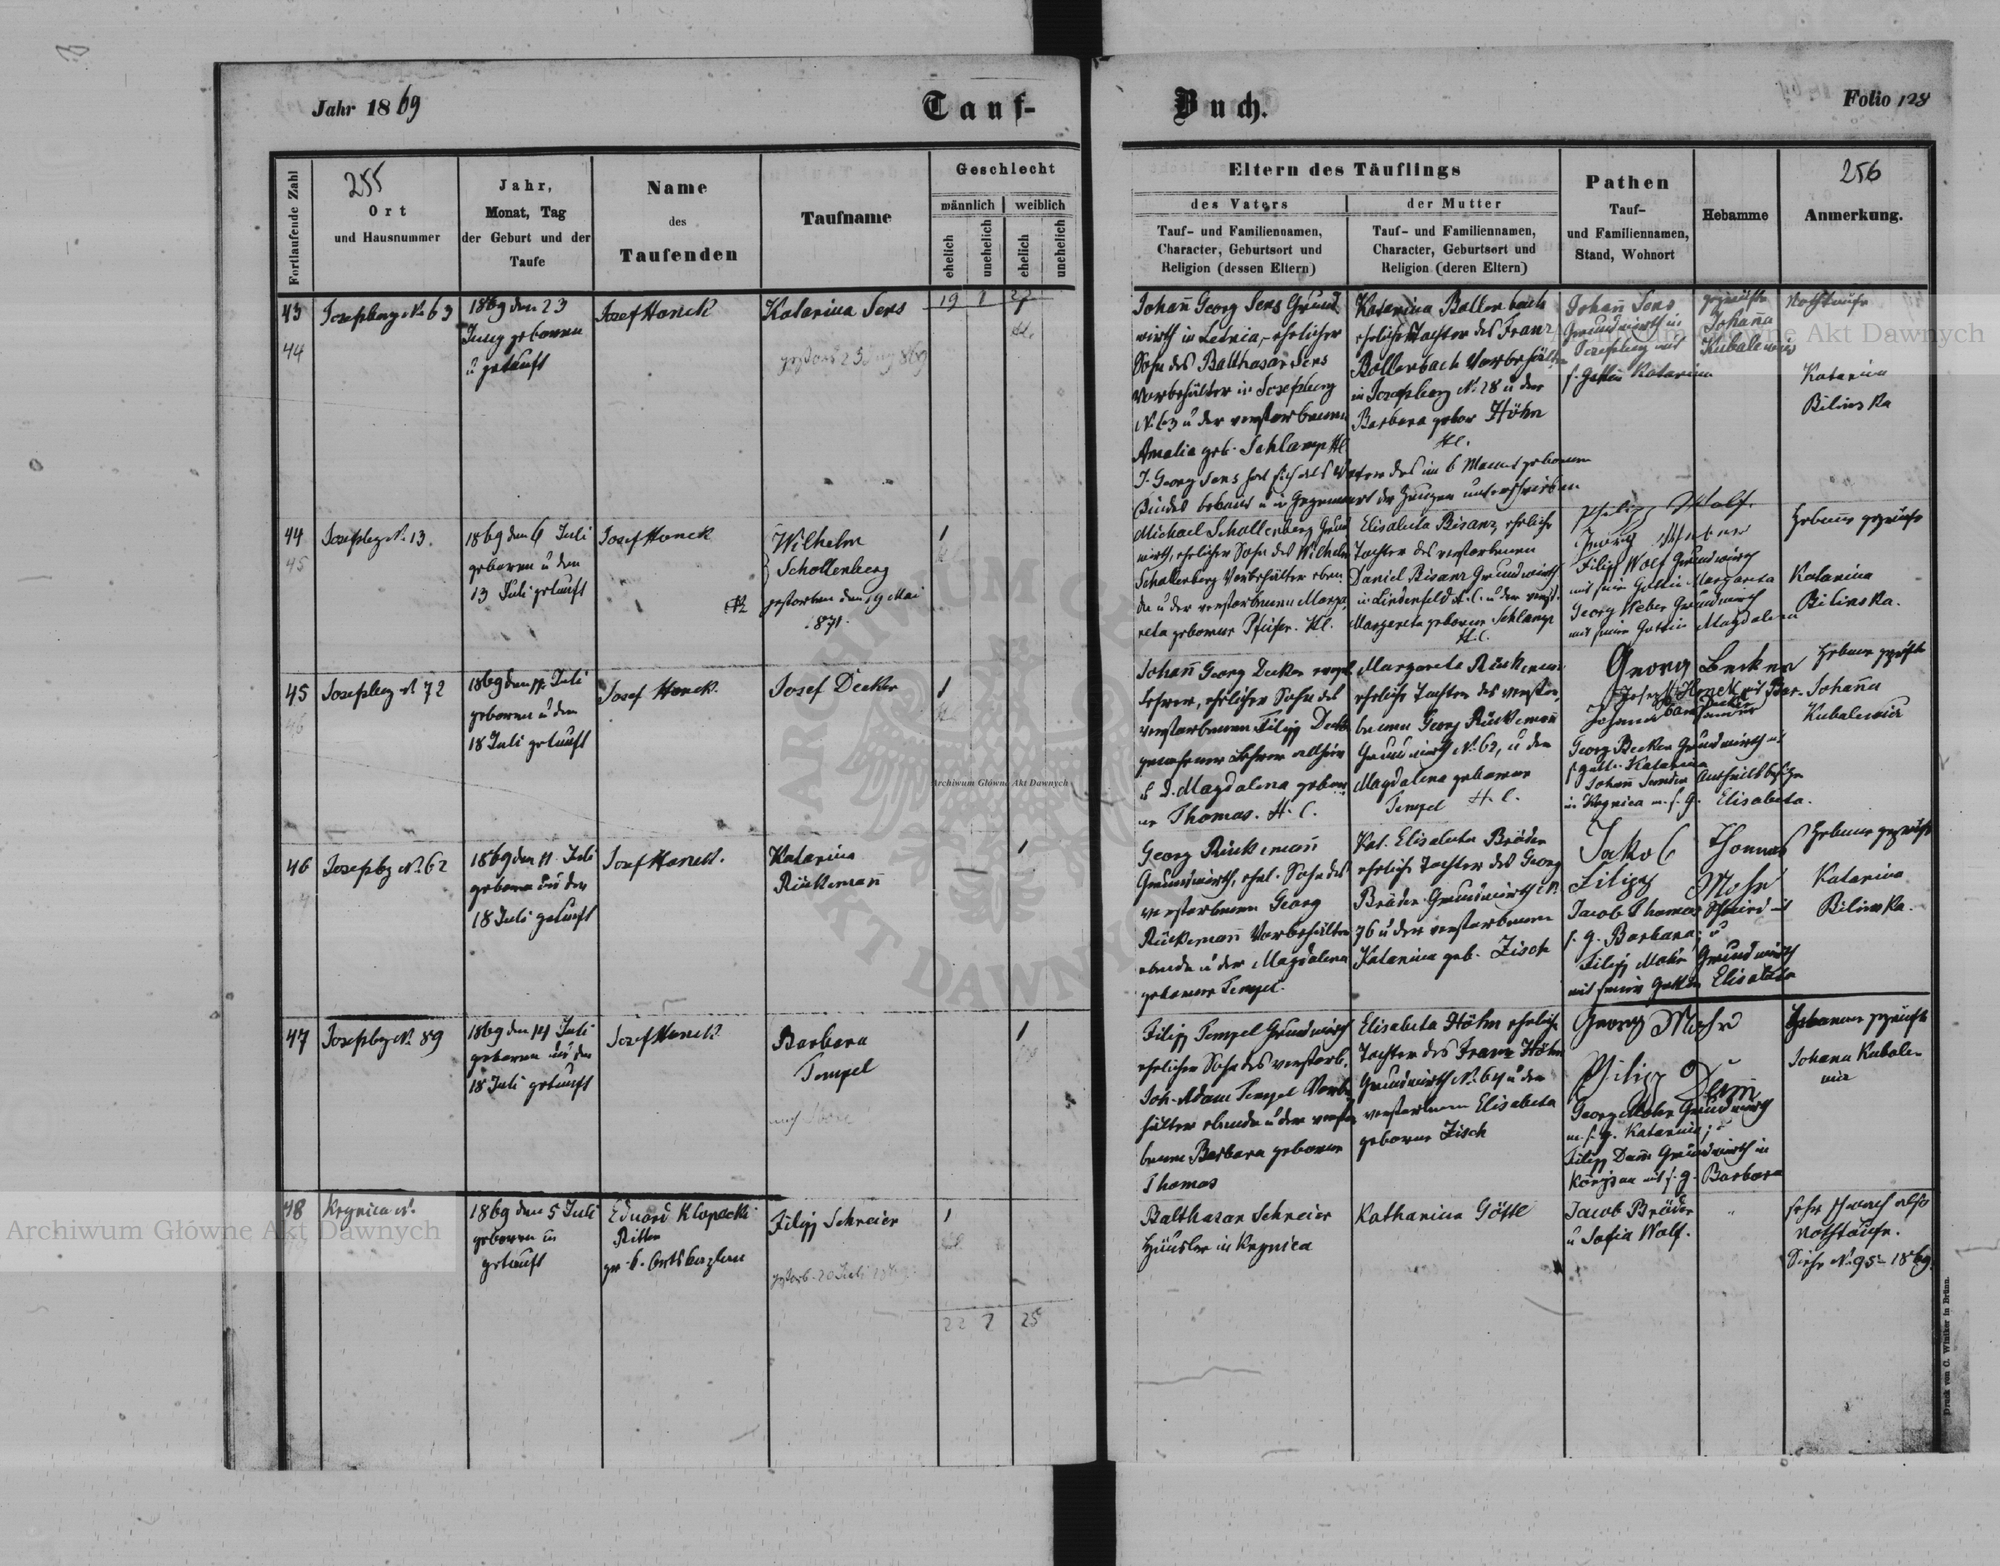 Jahr 1869
Tauf-
Buch.
Folio 128
Fortlaufende Zahl
255
Ort
und Hausnummer
Jahr,
Monat, Tag
der Geburt und der
Taufe
Name
des
Taufenden
Taufname
Geschlecht
männlich
weiblich
ehelich
unehelich
ehelich
unehelich
Eltern des Täuflings
des Vaters
der Mutter
Tauf- und Familiennamen,
Character, Geburtsort und
Religion (dessen Eltern)
Tauf- und Familiennamen,
Character, Geburtsort und
Religion (deren Eltern)
Pathen
Tauf-
und Familiennamen,
Stand, Wohnort
Hebamme
256
Anmerkung.
43
44
Josefsberg N. 63
1869 den 23
geboren
u getauft
Josef Honek
Katarina Sens
19 1 27
Johann Georg Sens Grund
wirth in Lednica, ehelicher
Sohn des Balthasar Sens
Vorbehälter in Josefsberg
N. 63 u der verstorbenen
Amalia geb. Schlamp
Katarina Bollenbach
eheliche Tochter des Franz
Bollenbach Vorbehälter
in Josefsberg N. 28 u der
Barbara gebor Höhn
H.C.
J. Georg Sens hat sich als Vater des im 6 Monat geborenen
Kindes bekannt u in Gegenwart der Zeugen unterschrieben
Johann Sens
Grundwirth in
Josefsberg mit
s. Gattin Katarina
geprüfte
Johanna
Kubalewicz
Nothtaufe
Katarina
Bilinska
44
45
Josefsbg N. 13.
1869 den 6 Juli
geboren u den
13 Juli getauft
Josef Honek
Wilhelm
Schollenberg
gestorben den 19 Mai
1871.
1
Michael Schollenberg Grund
wirth, ehelicher Sohn des Wilhelm
Schollenberg Vorbehälter eben
da u der verstorbenen Marga
reta geborner Pfeifer. H.C.
Elisabeta Bisanz, eheliche
Tochter des verstorbenen
Daniel Bisanz Grundwirth
in Lindenfeld H.C. u der verst.
Margareta geborner Schlamp
H.C.
Philipp Wolf.
Georg Weber
Filipp Wolf Grundwirth
mit seiner Gattin Margareta
Georg Weber Grundwirth
mit seiner Gattin Magdalena
Hebamme geprüfte
Katarina
Bilinska.
45
46
Josefsbg N 72
1869 den 17. Juli
geboren u den
18 Juli getauft
Josef Honek.
Josef Decker
1
Johann Georg Decker
Lehrer, ehelicher Sohn des
verstorbenen Filipp Decker
gewesener Lehrer allhier
u d. Magdalena gebor
ner Thomas. H.C.
Margareta Rückemann
eheliche Tochter des verstor
benen Georg Rückemann
Grundwirth N. 62, u der
Magdalena geborner
Tempel H.C.
Georg Becker
Georg Becker Grundwirth u
s Gattin Katarina
Johann
in Krynica m. s. G. Elisabeta.
Hebamme geprüfte
Johanna
Kubalewicz
46
Josefsbg N. 62
1869 den 11. Juli
geboren und den
18 Juli getauft
Josef Honek.
Katarina
Rückemann
1
Georg Rückemann
Grundwirth, ehel. Sohn des
verstorbenen Georg
Rückemann Vorbehälter
ebenda u der Magdalena
geborner Tempel.
Kat. Elisabeta Bräder
eheliche Tochter des Georg
Bräder Grundwirth N.
76 u der verstorbenen
Katarina geb. Zisch
Jakob Thomas
Filipp Mohr
Jacob Thomas Schmied mit
s. G. Barbara, u
Filipp Mohr Grundwirth
mit seiner Gattin Elisabeta
Hebamme geprüfte
Katarina
Bilinska.
47
Josefsbg N. 89
1869 den 14 Juli
geboren und den
18 Juli getauft
Josef Honek
Barbara
Tempel
1
Filipp Tempel Grundwirth
ehelicher Sohn des verstorb.
Joh. Adam Tempel Vorbe
hälter ebenda u der verstor
benen Barbara geborner
Thomas
Elisabeta Höhn eheliche
Tochter des Franz Höhn
Grundwirth N. 64 u der
verstorbenen Elisabeta
geborne Zisch
Georg Mohr
Philipp Damm
Georg Mohr Grundwirth
m. s. G. Katarina; u
Filipp Damm Grundwirth in
Königsau mit s. G. Barbara
Hebamme geprüfte
Johana Kubale
wicz
48
Krynica
1869 den 5 Juli
geboren u
getauft
Eduard Klopacki
Ritter
gr. k. Ortskaplan
Filipp Schreier
gestorb. 20 Juli
1
Balthasar Schreier
Häusler in Krynica
Katharina Göttl
Jacob Bräder
u Sofia Wolf.
"
sehr schwach also
Nothtaufe.
Siehe N. 95 - 1869.
22 1 25
Druck von C. Winiker in Brünn.
Archiwum Główne Akt Dawnych
Archiwum Główne Akt Dawnych
Archiwum Główne Akt Dawnych
ARCHIWUM GŁÓWNE AKT DAWNYCH